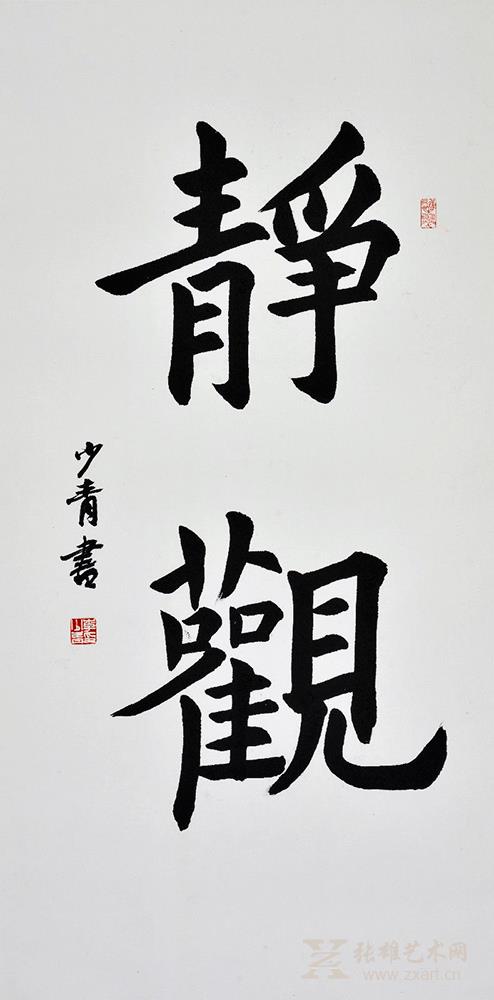 靜
觀
少青書
张雄艺术网
www.zxart.cn